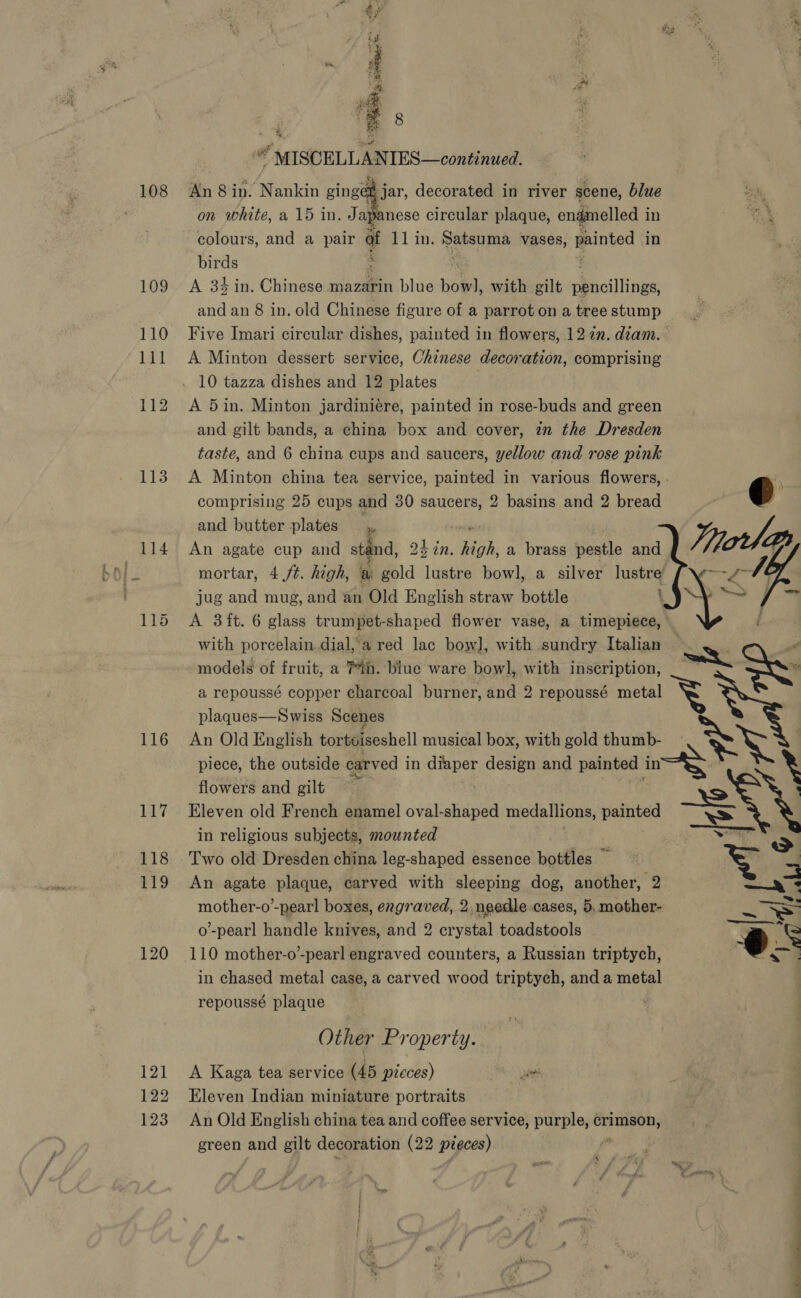 8
MISCELLANIES—continued.
108 An 8 in. Nankin ginger jar, decorated in river scene, blue
on white, a 15 in. Japanese circular plaque, enamelled in
colours, and a pair of 11 in. Satsuma vases, painted in
birds
109 A 3½ in. Chinese mazarin blue bowl, with gilt pencillings,
and an 8 in. old Chinese figure of a parrot on a tree stump
110 Five Imari circular dishes, painted in flowers, 12 in. diam.
111 A Minton dessert service, Chinese decoration, comprising
10 tazza dishes and 12 plates
112 A 5 in. Minton jardinière, painted in rose-buds and green
and gilt bands, a china box and cover, in the Dresden
taste, and 6 china cups and saucers, yellow and rose pink
113 A Minton china tea service, painted in various flowers,
comprising 25 cups and 30 saucers, 2 basins and 2 bread
and butter plates
114 An agate cup and stand, 2½ in. high, a brass pestle and
mortar, 4 ft. high, a gold lustre bowl, a silver lustre
jug and mug, and an Old English straw bottle
115 A 3 ft. 6 glass trumpet-shaped flower vase, a timepiece,
with porcelain dial, a red lac bowl, with sundry Italian
models of fruit, a 7 in. blue ware bowl, with inscription,
a repoussé copper charcoal burner, and 2 repoussé metal
plaques—Swiss Scenes
116 An Old English tortoiseshell musical box, with gold thumb-
piece, the outside carved in diaper design and painted in
flowers and gilt
117 Eleven old French enamel oval-shaped medallions, painted
in religious subjects, mounted
118 Two old Dresden china leg-shaped essence bottles
119 An agate plaque, carved with sleeping dog, another, 2
mother-o'-pearl boxes, engraved, 2 needle cases, 5 mother-
o'-pearl handle knives, and 2 crystal toadstools
120 110 mother-o'-pearl engraved counters, a Russian triptych,
in chased metal case, a carved wood triptych, and a metal
repoussé plaque
Other Property.
121 A Kaga tea service (45 pieces)
122 Eleven Indian miniature portraits
123 An Old English china tea and coffee service, purple, crimson,
green and gilt decoration (22 pieces)